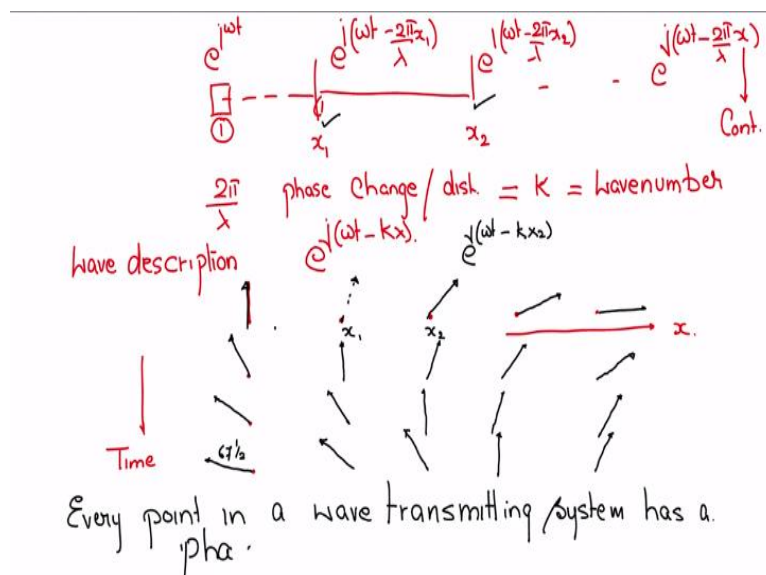 e^{jωt} e^{j(ωt - 2π/λ x₁)} e^{j(ωt - 2π/λ x₂)} - - e^{j(ωt - 2π/λ x)}
① x₁ x₂ Cont.
2π/λ phase change / dist. = K = wavenumber
wave description e^{j(ωt - kx)}. e^{j(ωt - kx₂)}
x₁ x₂ x.
Time 67½
Every point in a wave transmitting system has a
pha.